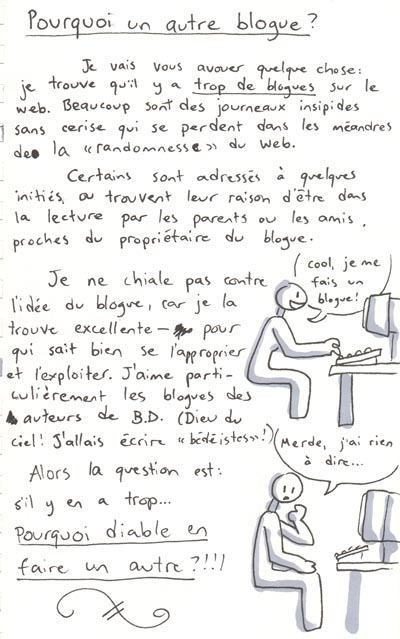 Pourquoi un autre blogue?
Je vais vous avouer quelque chose:
je trouve qu'il y a trop de blogues sur le
web. Beaucoup sont des journeaux insipides
sans cerise qui se perdent dans les méandres
de la «randomnesse» du web.
Certains sont adressés à quelques
initiés, ou trouvent leur raison d'être dans
la lecture par les parents ou les amis
proches du propriétaire du blogue.
Je ne chiale pas contre
l'idée du blogue, car je la
trouve excellente — pour
qui sait bien se l'approprier
et l'exploiter. J'aime parti-
culièrement les blogues des
auteurs de B.D. (Dieu du
ciel! J'allais écrire «bédéistes»!)
Alors la question est:
s'il y en a trop...
Pourquoi diable en
faire un autre?!!!
cool, je me
fais un
blogue!
Merde, j'ai rien
à dire...